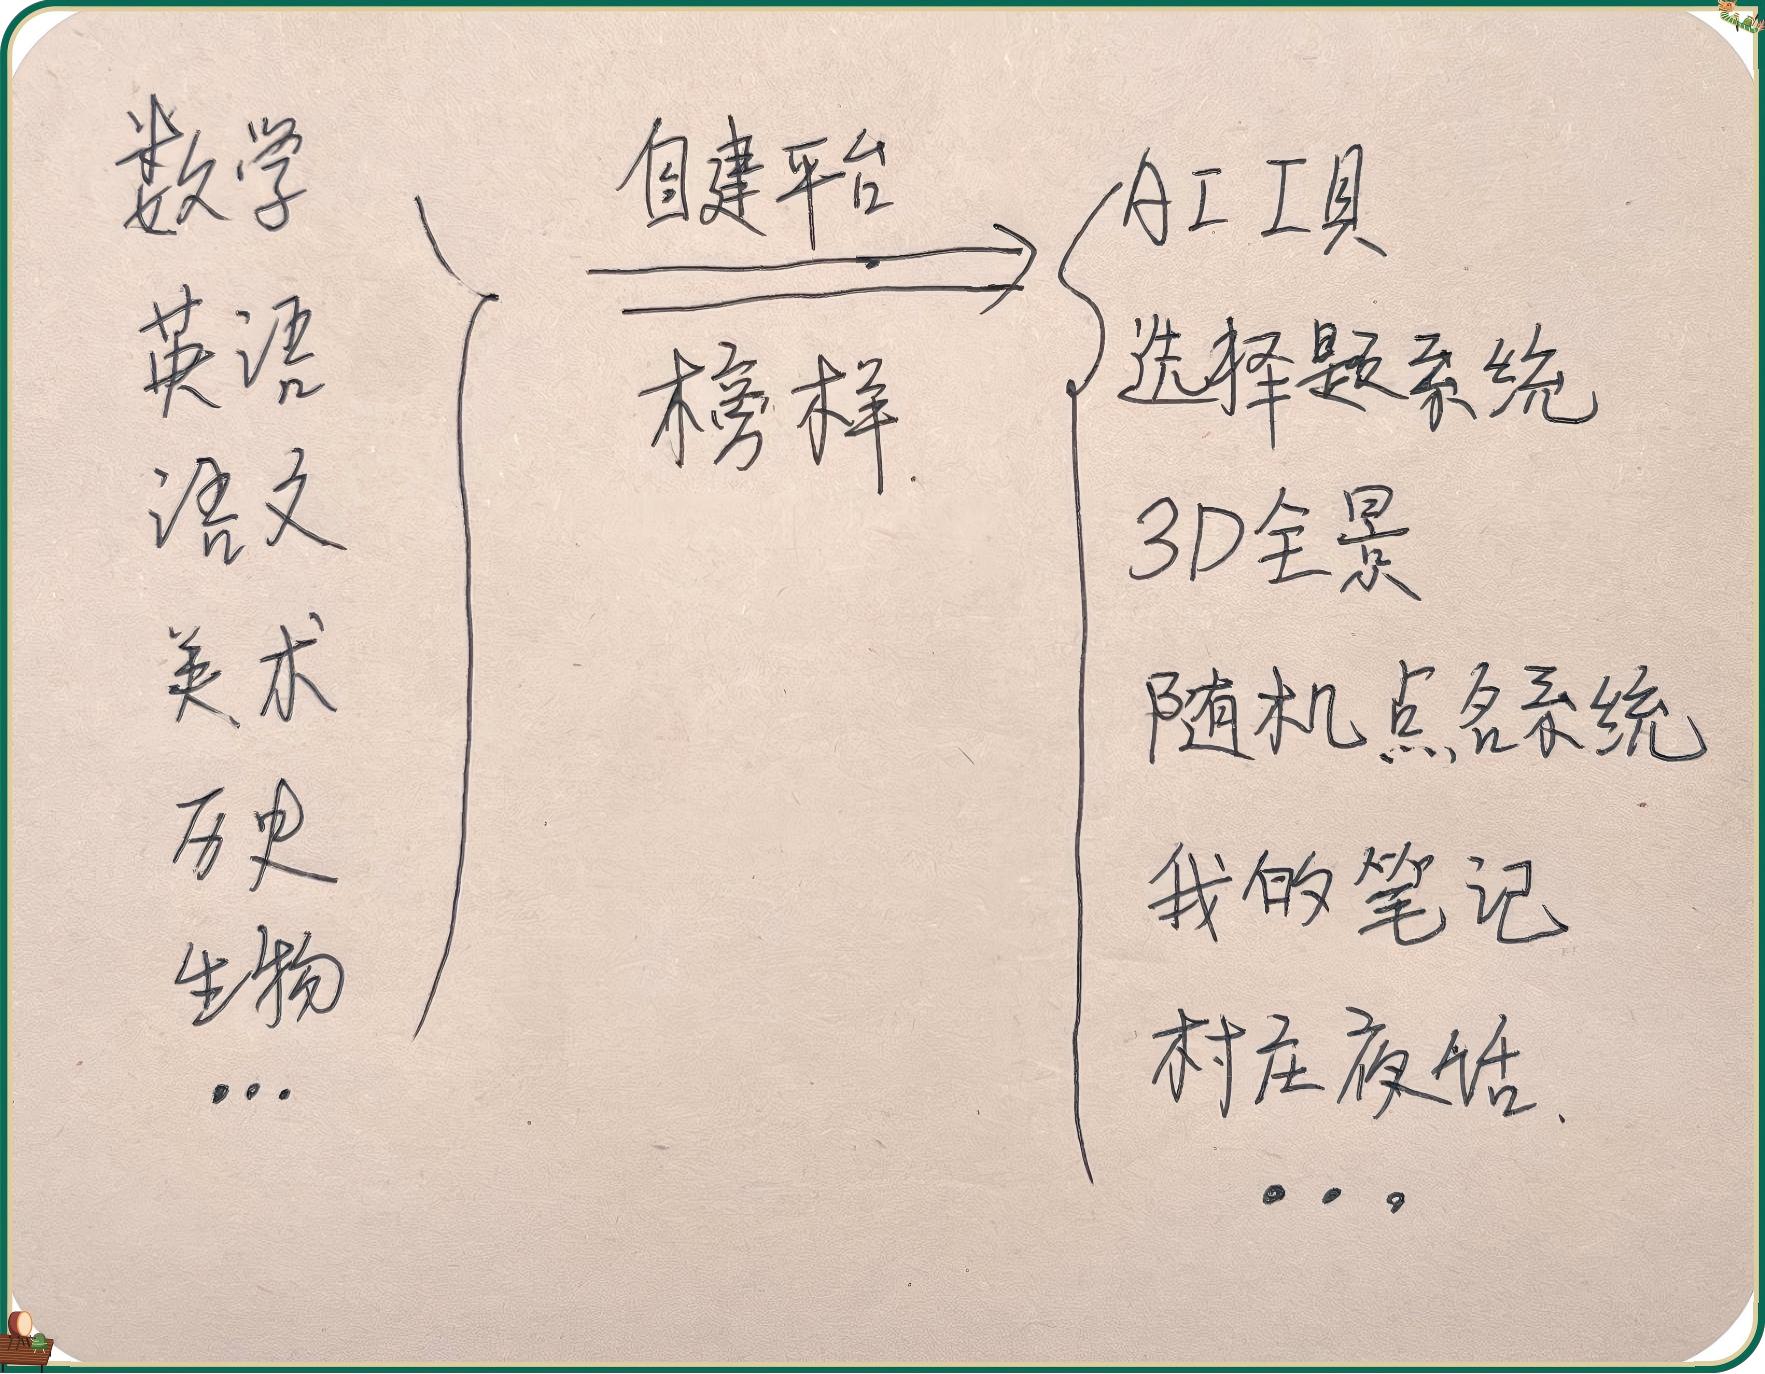 数学
英语
语文
美术
历史
生物
...
自建平台
榜样
AI工具
选择题系统
3D全景
随机点名系统
我的笔记
村庄夜话
...